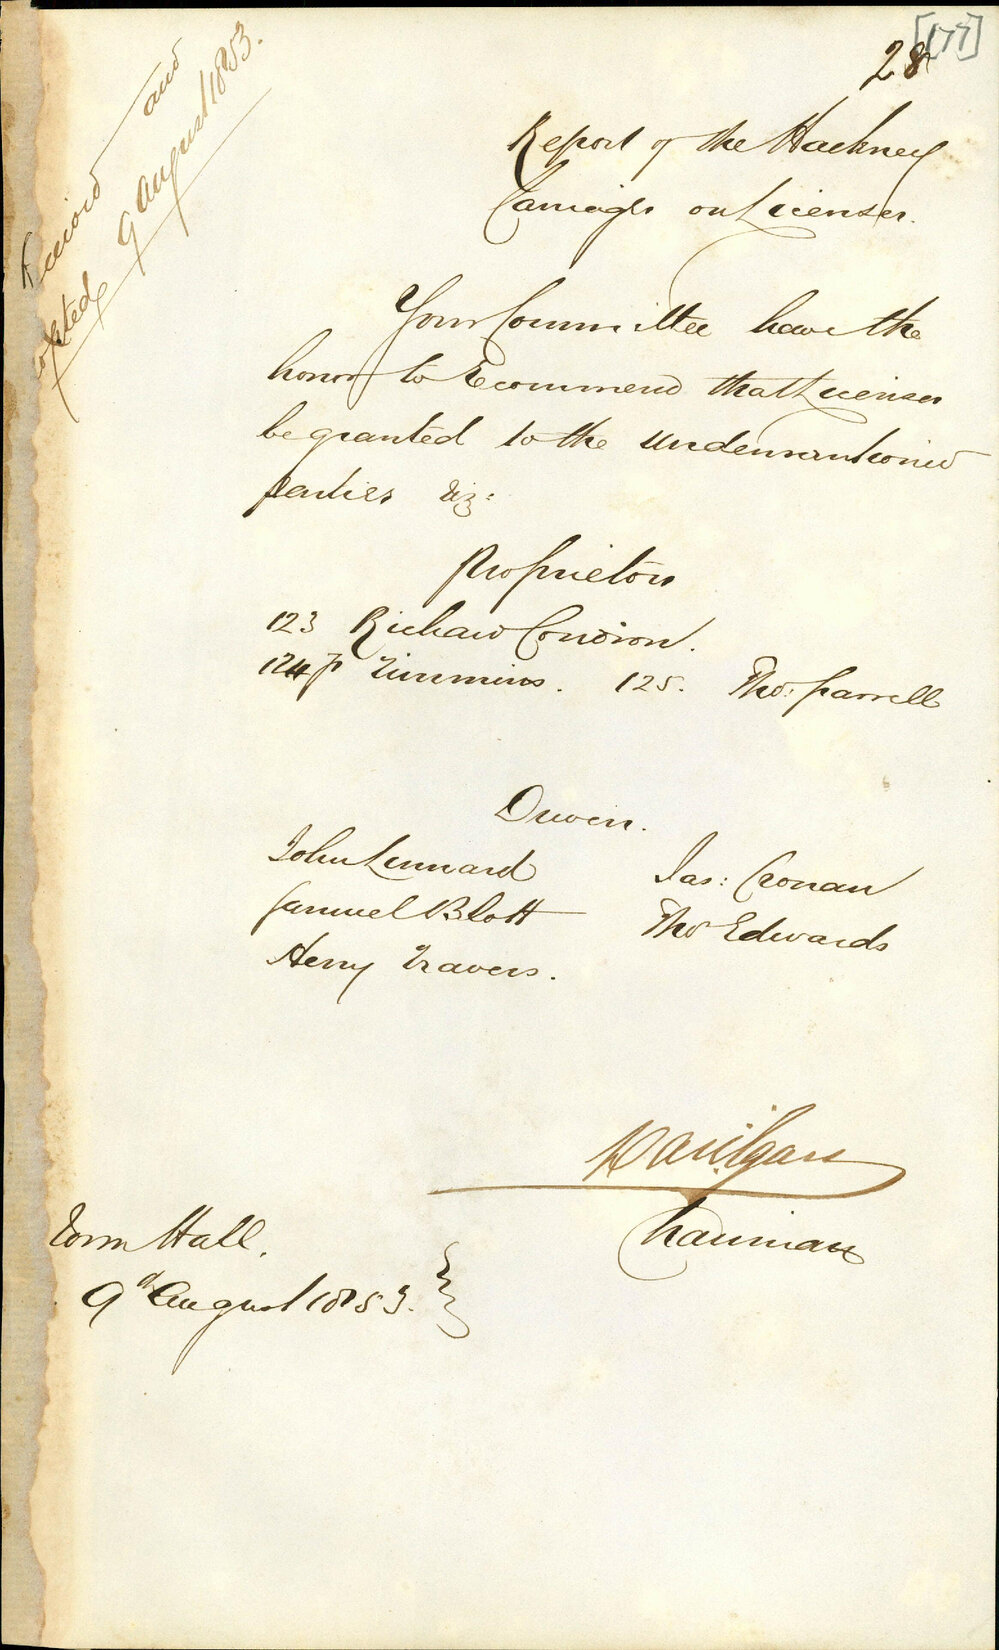 [177]
28
Received and
adopted 9 August 1853.
Report of the Hackney
Carriages on Licenses.
Your Committee have the
honor to recommend that Licenses
be granted to the undermentioned
parties viz:
Proprietors
123 Richard Condron.
124 P Timmins. 125. Tho: Farrell
Drivers.
John Lennard Jas: Cronan
Samuel Blott Tho Edwards
Henry Travers.
Chairman
Town Hall.
9th August 1853.